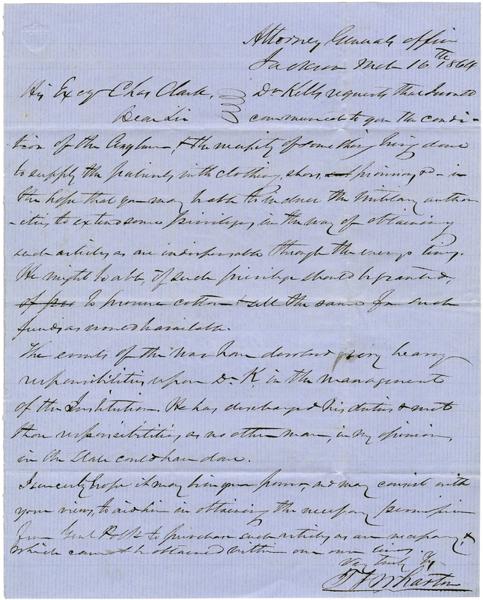 Attorney Generals office
Jackson Mch 16th 1864
His Excy Chas Clark,
Dear Sir
Dr Kells requests that I would
communicate to you the condi-
tion of the Asylum, & the necessity of something being done
to supply the patients with clothing, shoes, provisions, &c - in
the hope that you may be able to induce the Military author
-ities to extend some privileges in the way of obtaining
such articles as are indispensable through the enemys lines.
He might be able, if such privilege should be granted,
to procure cotton & sell the same for such
funds as would be available.
The events of the War have devolved very heavy
responsibilities upon Dr K. in the management
of the Institution. He has discharged his duties & met
those responsibilities as no other man, in my opinion,
in the State could have done.
I sincerely hope it may be in your power, and may consist with
your views, to aid him in obtaining the necessary permission
from Genl Polk to purchase such articles as are necessary &
which cannot be obtained within our own lines
Very truly Yrs
T J Wharton